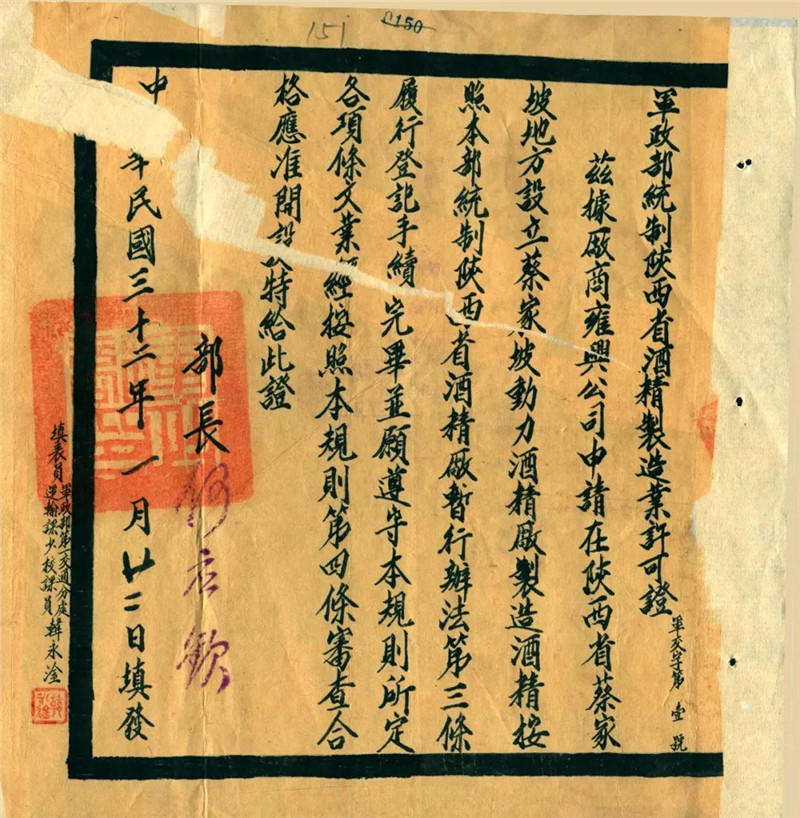 151
0150
軍政部統制陝西省酒精製造業許可證
軍交字第壹號
茲據廠商雍興公司申請在陝西省蔡家
坡地方設立蔡家坡動力酒精廠製造酒精按
照本部統制陝西省酒精廠暫行辦法第三條
履行登記手續完畢並願遵守本規則所定
各項條文業經按照本規則第四條審查合
格應准開設特給此證
部長何应欽
中華民國三十二年一月廿二日填發
軍政部第一交通分處
填表員運輸課少校課員韓永淦